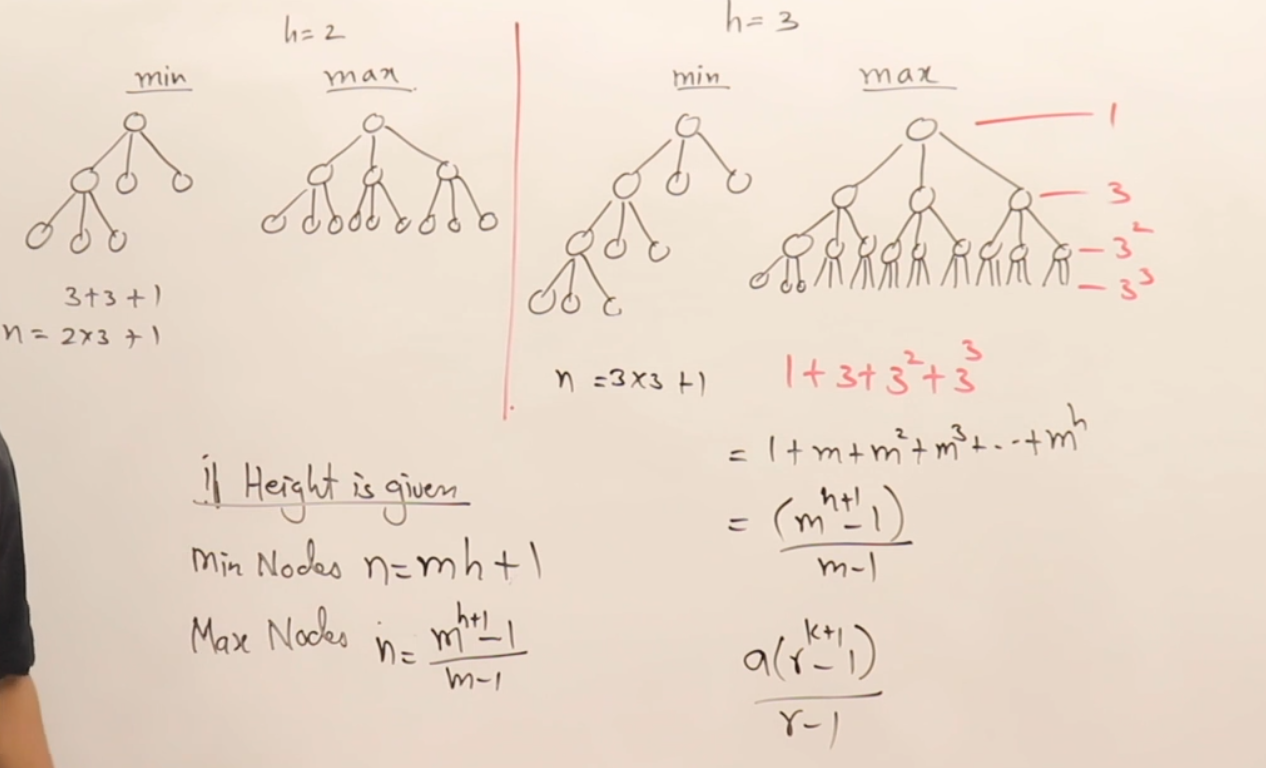 h=2
min max
3+3+1
n= 2×3 +1
h= 3
min max
1
3
3²
3³
n =3×3 +1
1+3+3²+3³
= 1+m+m²+m³+...+m^h
= (m^(h+1)-1)/(m-1)
a(r^(k+1)-1)/(r-1)
if Height is given
Min Nodes n=mh+1
Max Nodes n= (m^(h+1)-1)/(m-1)